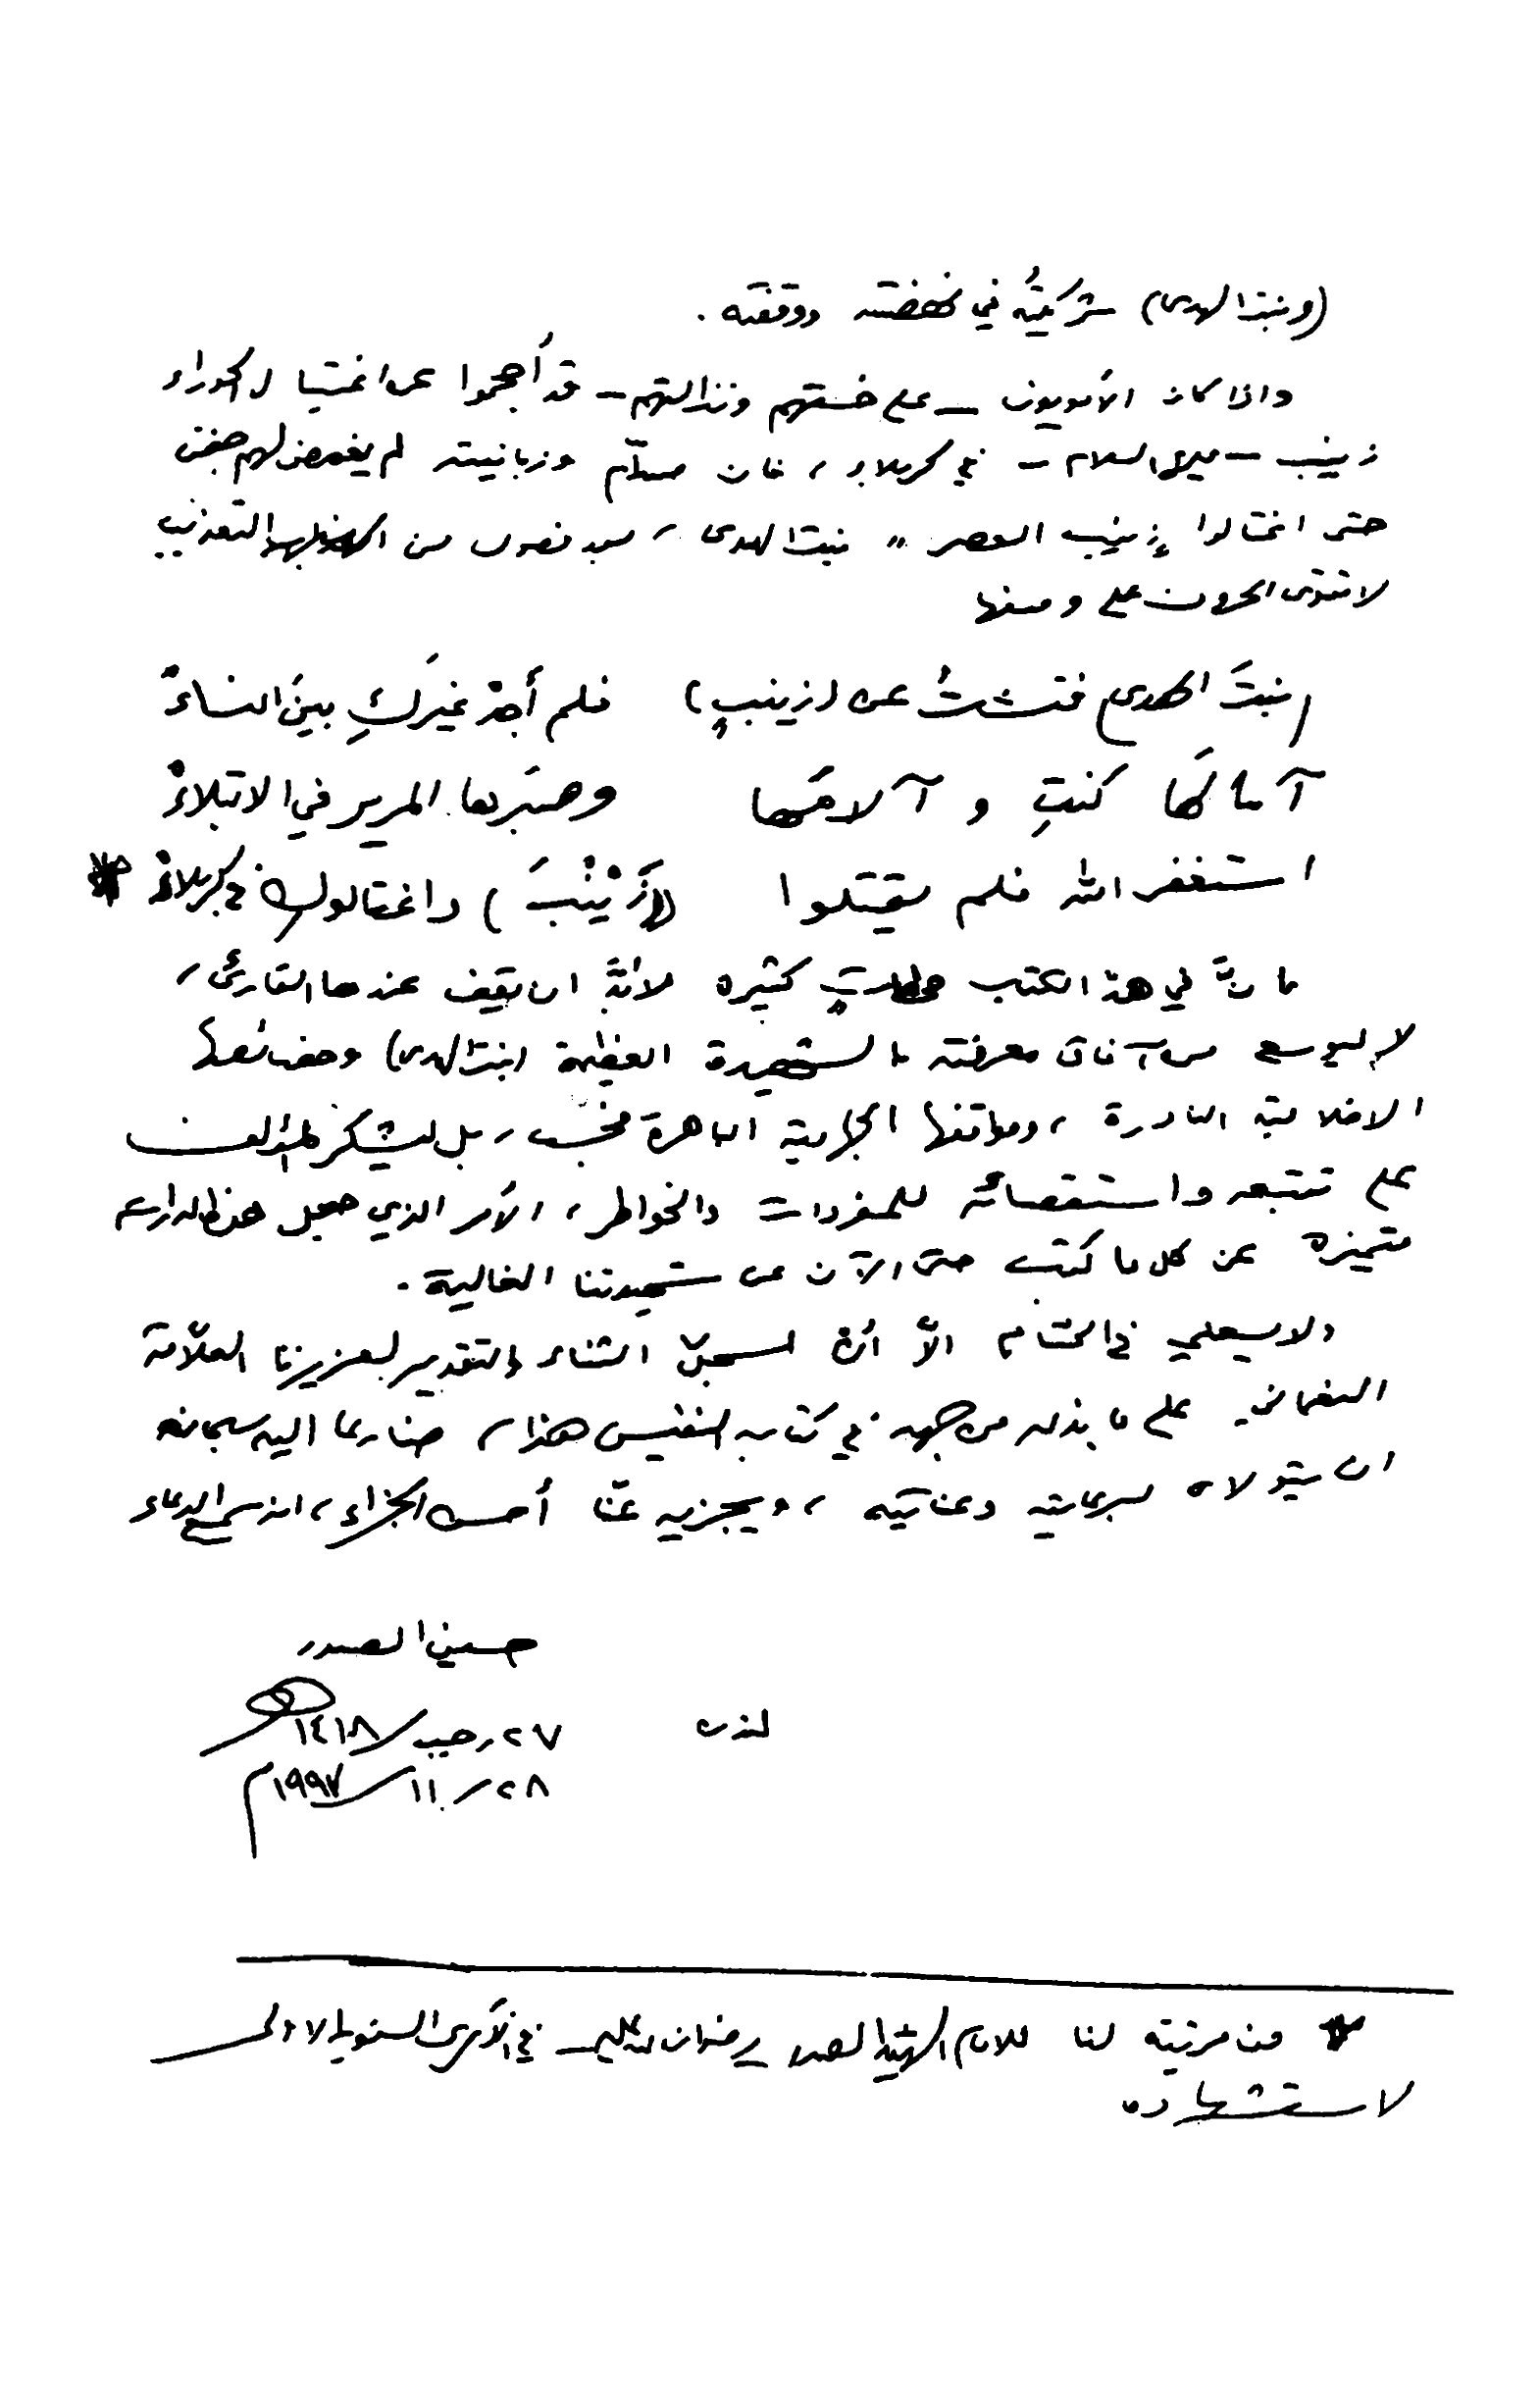 (وبنت الهدى) شريكتُه في نهضته ووقفته .
واذا كان الأمويون – على خستهم ونذالتهم – قد أحجموا عن اغتيال الحوراء
زينب – عليها السلام – في كربلاء ، فان صدّام وزبانيته لم يغمض لهم جفن
حتى اغتالوا زينب العصر " بنت الهدى ، بعد فصول من التعذيب
لا تقوى الحروف على وصفها
(بنتَ الهدى) فتشتُ عن (زينبٍ) فلم أجدْ غيرَكِ بينَ النساءْ
آمالَها كنتِ و آلامَها وصبرَها المرير في الابتلاءْ
استغفر الله فلم يقتلوا (زَيْنبَ) واغتالوكِ في كربلاءْ *
ان في هذا الكتاب محطاتٍ كثيره لابُدَّ ان يقف عندها القارئ ،
لا ليوسع من آفاق معرفته بالشهيدة العظيمة (بنت الهدى) وخصائصها
الاخلاقية النادرة ، ومواقفها الجهادية الباهرة فحسب ، بل ليشكر للمؤلف
على تتبعه واستقصائه للمفردات والخواطر ، الأمر الذي جعل هذه الدراسة
متميزه عن كل ما كتب حتى الآن عن شهيدتنا الغالية .
ولا يسعني في الختام الاّ أنْ اسجّل الثناء والتقدير لعزيزنا العلاّمة
النعماني على ما بذله من جهد في كتابه النفيس هذا ، ضارعا اليه سبحانه
ان يتولاه برعايته وعنايته ، ويجزيه عنّا أحسن الجزاء ، انه سميع الدعاء
حسين الصدر
لندن ٢٧ رجب / ١٤١٨
٢٨ / ١١ / ١٩٩٧م
* من مرثية لنا للامام الشهيد الصدر رضوان الله عليه في الذكرى السنوية الاولى
لاستشهاده